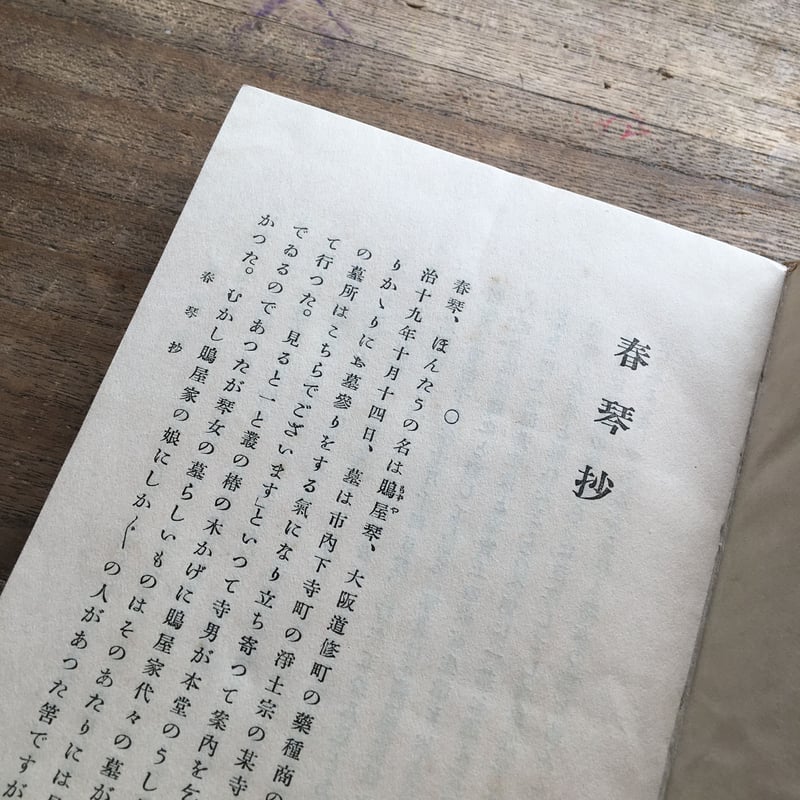 春琴抄
〇
春琴、ほんたうの名は鵙屋琴、大阪道修町の藥種商の
治十九年十月十四日、墓は市內下寺町の淨土宗の某寺
りかゝりにお墓參りをする氣になり立ち寄つて案內を乞
の墓所はこちらでございます」といつて寺男が本堂のうし
て行つた。見ると一と叢の椿の木かげに鵙屋家代々の墓が
でゐるのであつたが琴女の墓らしいものはそのあたりには
かつた。むかし鵙屋家の娘にしか〴〵の人があつた筈ですが
春琴抄